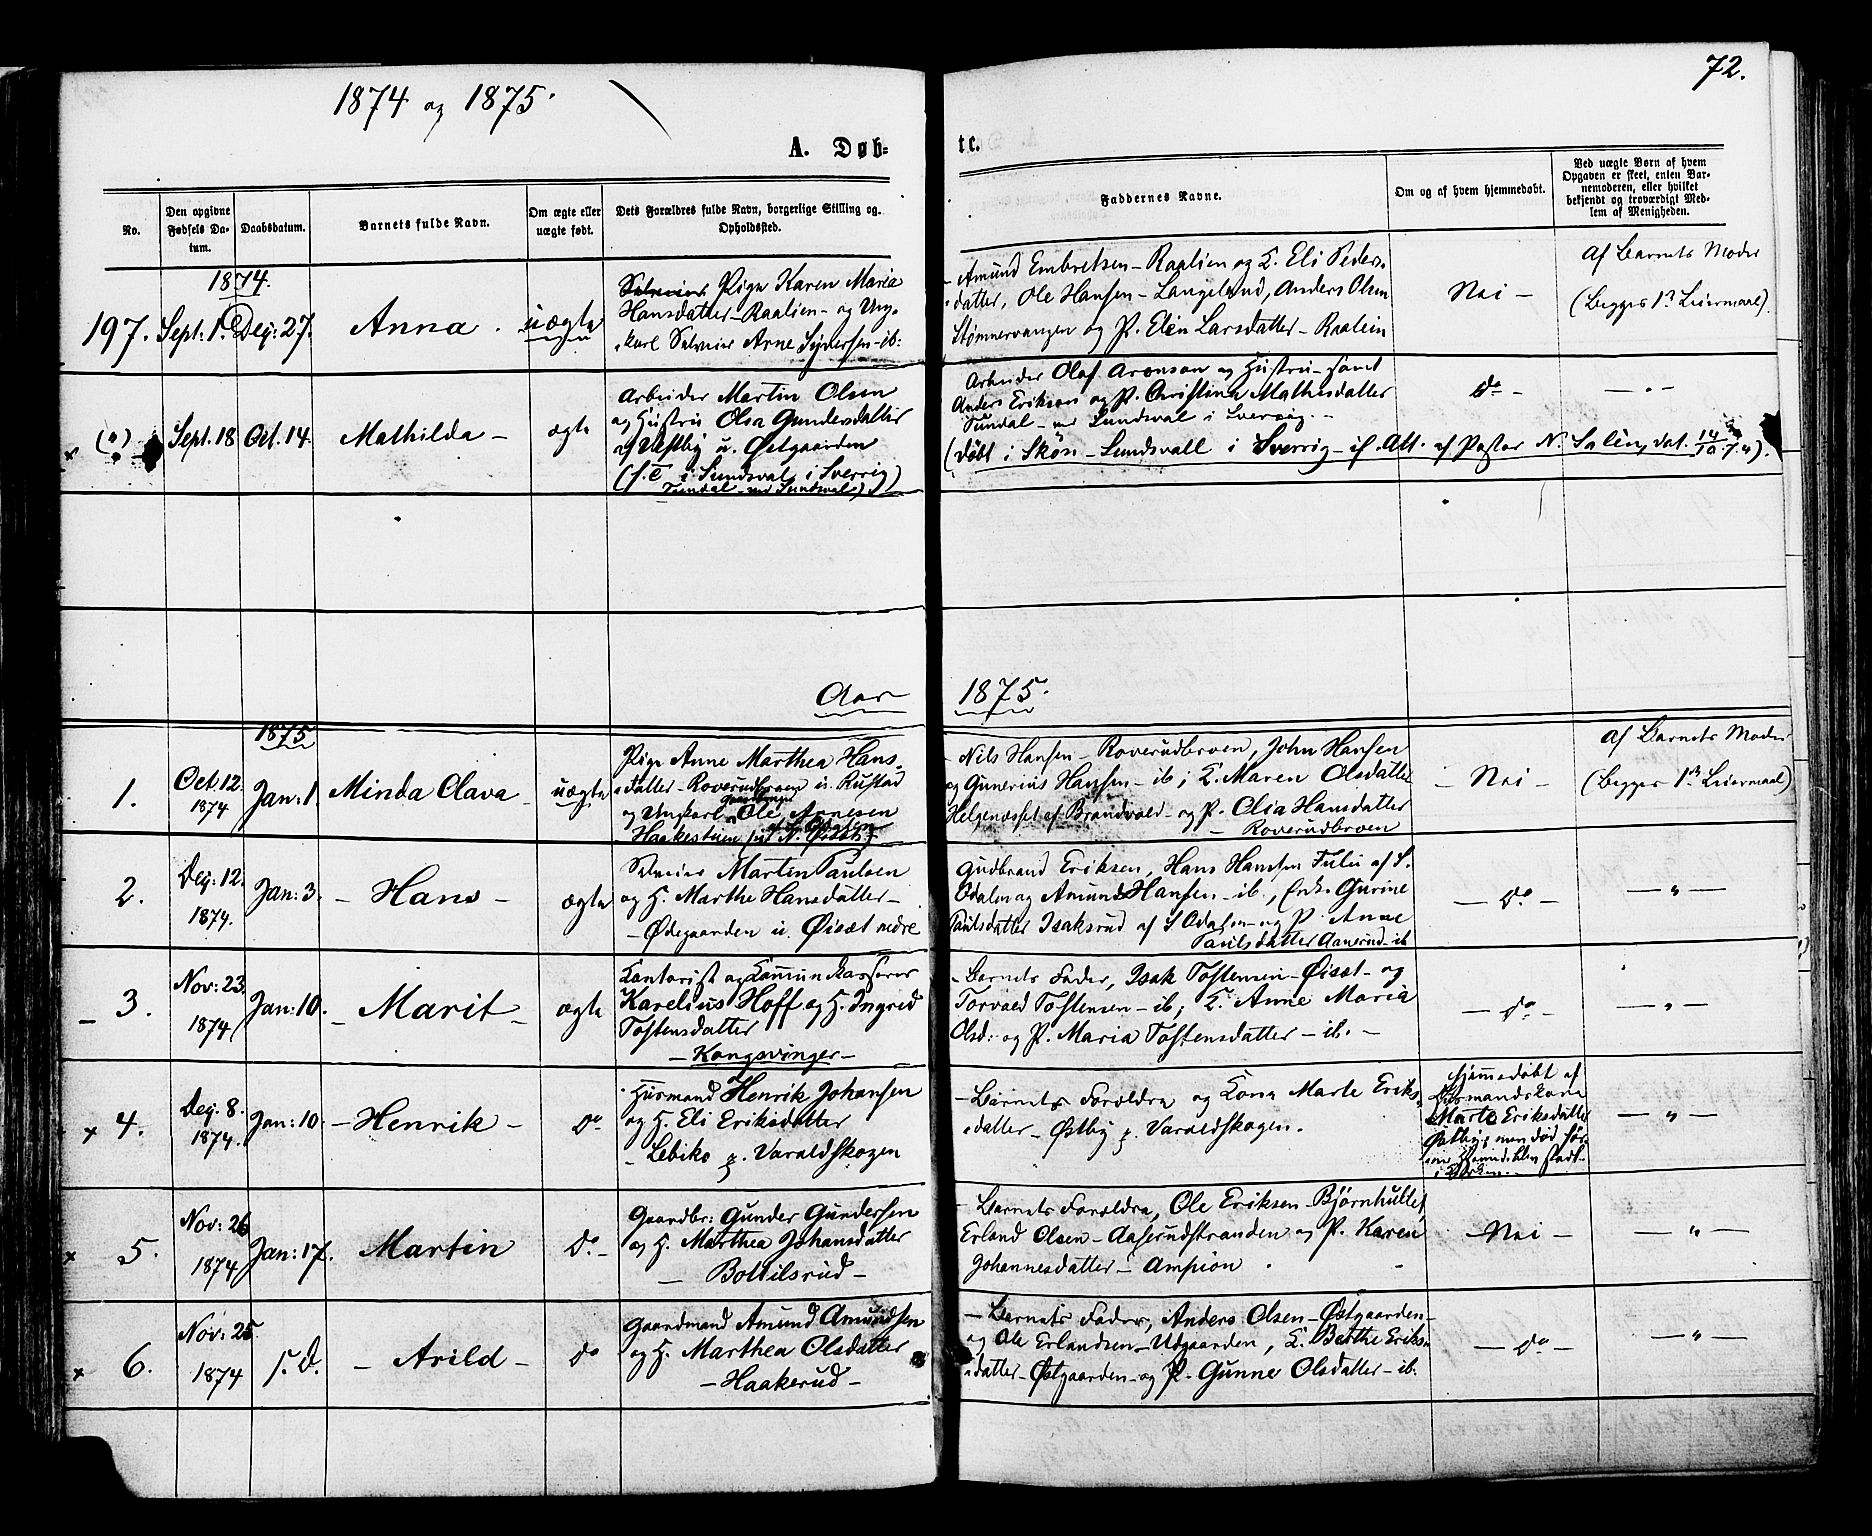 72.
1874 og 1875.
A. Døb-
te.
No.
Den opgivne Fødsels Da-
tum.
Daabsdatum.
Barnets fulde Navn.
Om ægte eller
uægte født.
Dets Forældres fulde Navn, borgerlige Stilling og
Opholdssted.
Faddernes Navne.
Om og af hvem hjemmedøbt.
Ved uægte Born af hvem
Opgaven er skeet, enten Bar-
nemoderen, eller hvilket
bekjendt og troværdigt Med-
lem af Menigheden.
1874.
197. Sept. 1. Dez: 27. Anna. uægte
Pige Karen Maria
Hansdatter - Raalien - og Ung-
karl Selveier Arne Syversen - ib:
- Amund Embretsen - Raalien og K. Eli Peders-
datter, Ole Hansen - Langeland, Anders Olsen
Stømnervangen og P. Elen Larsdatter - Raalien
Nei -
Af Barnets Moder
(Begges 1ste Leiermaal).
Sept. 18 Oct. 14. Mathilda - ægte
Arbeider Martin Olsen
og Hustru Olea Gundersdatter
af Vestby u. Østgaarden
(f. T. i Sundsval i Sverrig)
Arbeider Olof Aronson og Hustru - samt
Anders Erikson og P. Christina Mathesdatter
Sundal - ved Sundsval i Sverrig. -
(døbt i Skön - Sundsvall i Sverrig - if. Att. af Pastor N. Salén, dat. 14/10 74).
do -
- " -
Aar 1875.
1875
1. Oct 12. 1874 Jan: 1. Minda Clava uægte
Pige Anne Marthea Hans-
datter - Roverudbroen u. Rustad
og Ungkarl Ole Arnesen
Haakestuen
- Nils Hansen - Roverudbroen, John Hansen
og Gunerius Hansen - ib; K. Maren Olsdatter
Helgenæsset af Brandvold - og P. Olia Hansdatter
- Roverudbroen
- Nei -
af Barnets Moder
(Begges 1ste Leiermaal)
2. Dez: 12. 1874. Jan: 3. - Hans - ægte
Selveier Martin Paulsen
og H. Marthe Hansdatter -
- Ødegaarden u. Øisæt nedre
Gudbrand Eriksen, Hans Hansen Fulu af S.
Odalen og Amund Hansen - ib., Enke Gurine
Paulsdatter Isaksrud af S Odalen - og P. Anne
Paulsdatter Aanerud - ib
- do -
- " -
- 3. Nov: 23. 1874 Jan: 10. - Marit - ægte
Kontorist og Kommunekasserer
Karelius Hoff og H. Ingrid
Tostensdatter
- Kongsvinger -
- Barnets Fader, Isak Tostensen - Øisæt - og
Torvald Tostensen - ib; K. Anne Maria
Olsd: og P. Maria Tostensdatter - ib. -
- do -
- " -
x 4. Dez. 8. 1874. Jan: 10. - Henrik - do
Husmand Henrik Johansen
og H. Eli Eriksdatter
- Lebiko p. Varaldskogen
- Barnets Forældre og Kone Marte Eriks-
datter - Østby p. Varaldskogen.
Hjemmedøbt af
Marte Eriksdatter
Østby; men død før-
- " -
x 5. Nov: 26 1874 Jan: 17. Martin do -
Gaardbr: Gunder Gundersen
og H. Marthea Johansdatter
- Bottilsrud -
- Barnets Forældre, Ole Eriksen - Bjørnhullet,
Erland Olsen - Aaserudstranden og P. Karen
Johannesdatter - Ampion
- Nei -
- " -
x 6. Nov: 25. 1874 s. D. - Arild - do
Gaardmand Amund Amundsen
og H. Marthea Olsdatter
- Haakerud -
- Barnets Fader, Anders Olsen - Østgaarden -
og Ole Erlandsen - Udgaarden, K. Berthe Eriks-
datter - Østgaarden - og P. Gunne Olsdatter - ib.
- do -
- " -